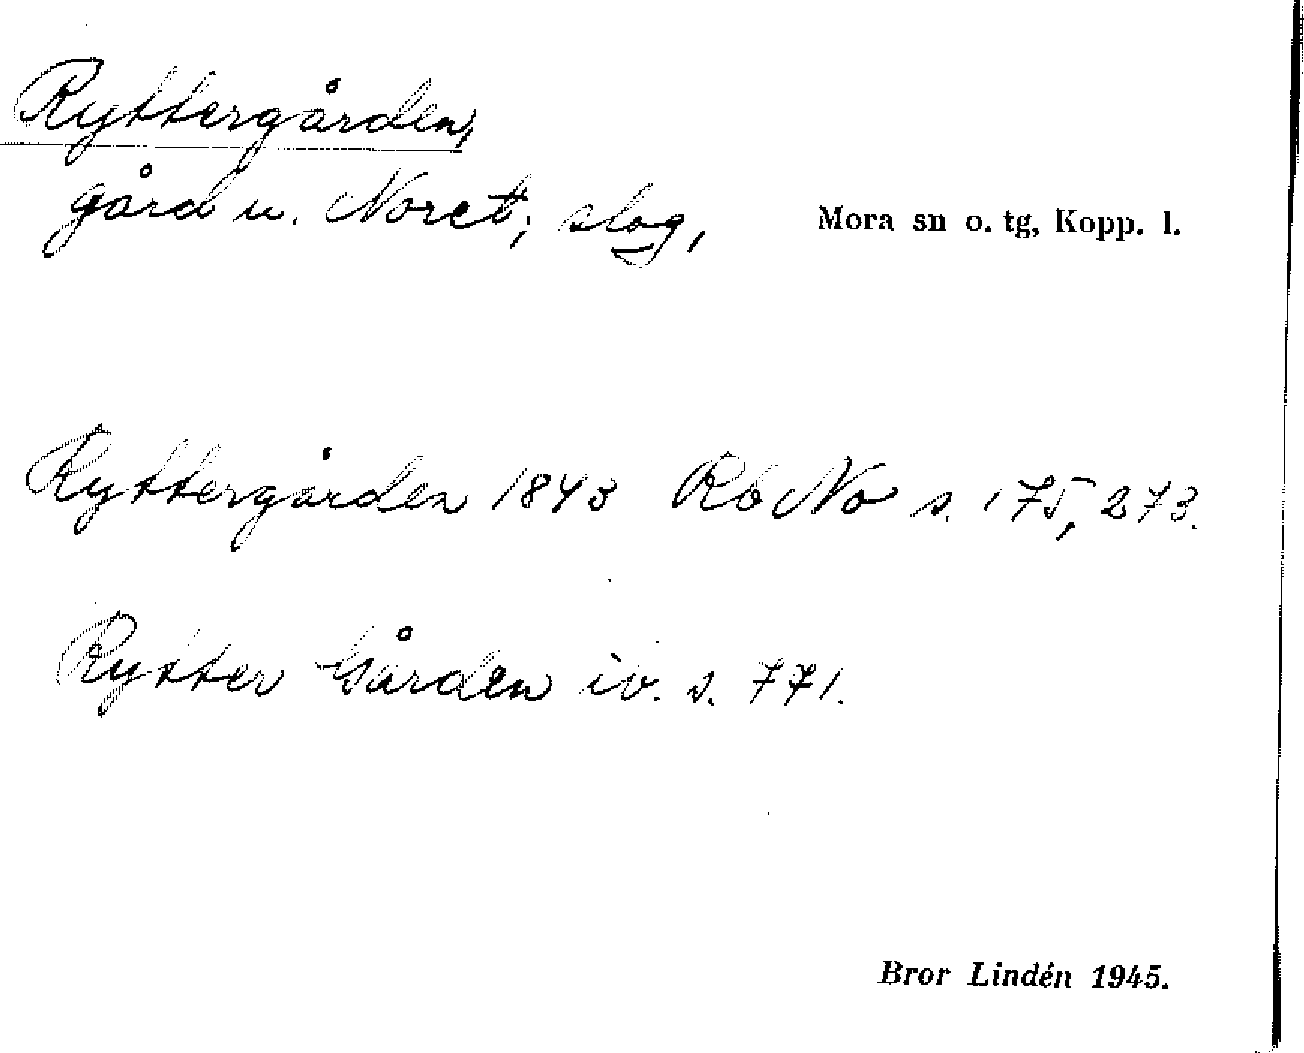 Ryttergården,
gård u. Noret; slog, Mora sn o. tg, Kopp. l.
Ryttergården 1843 Rb No s. 175, 273.
Rytter Gården ib. s. 771.
Bror Lindén 1945.